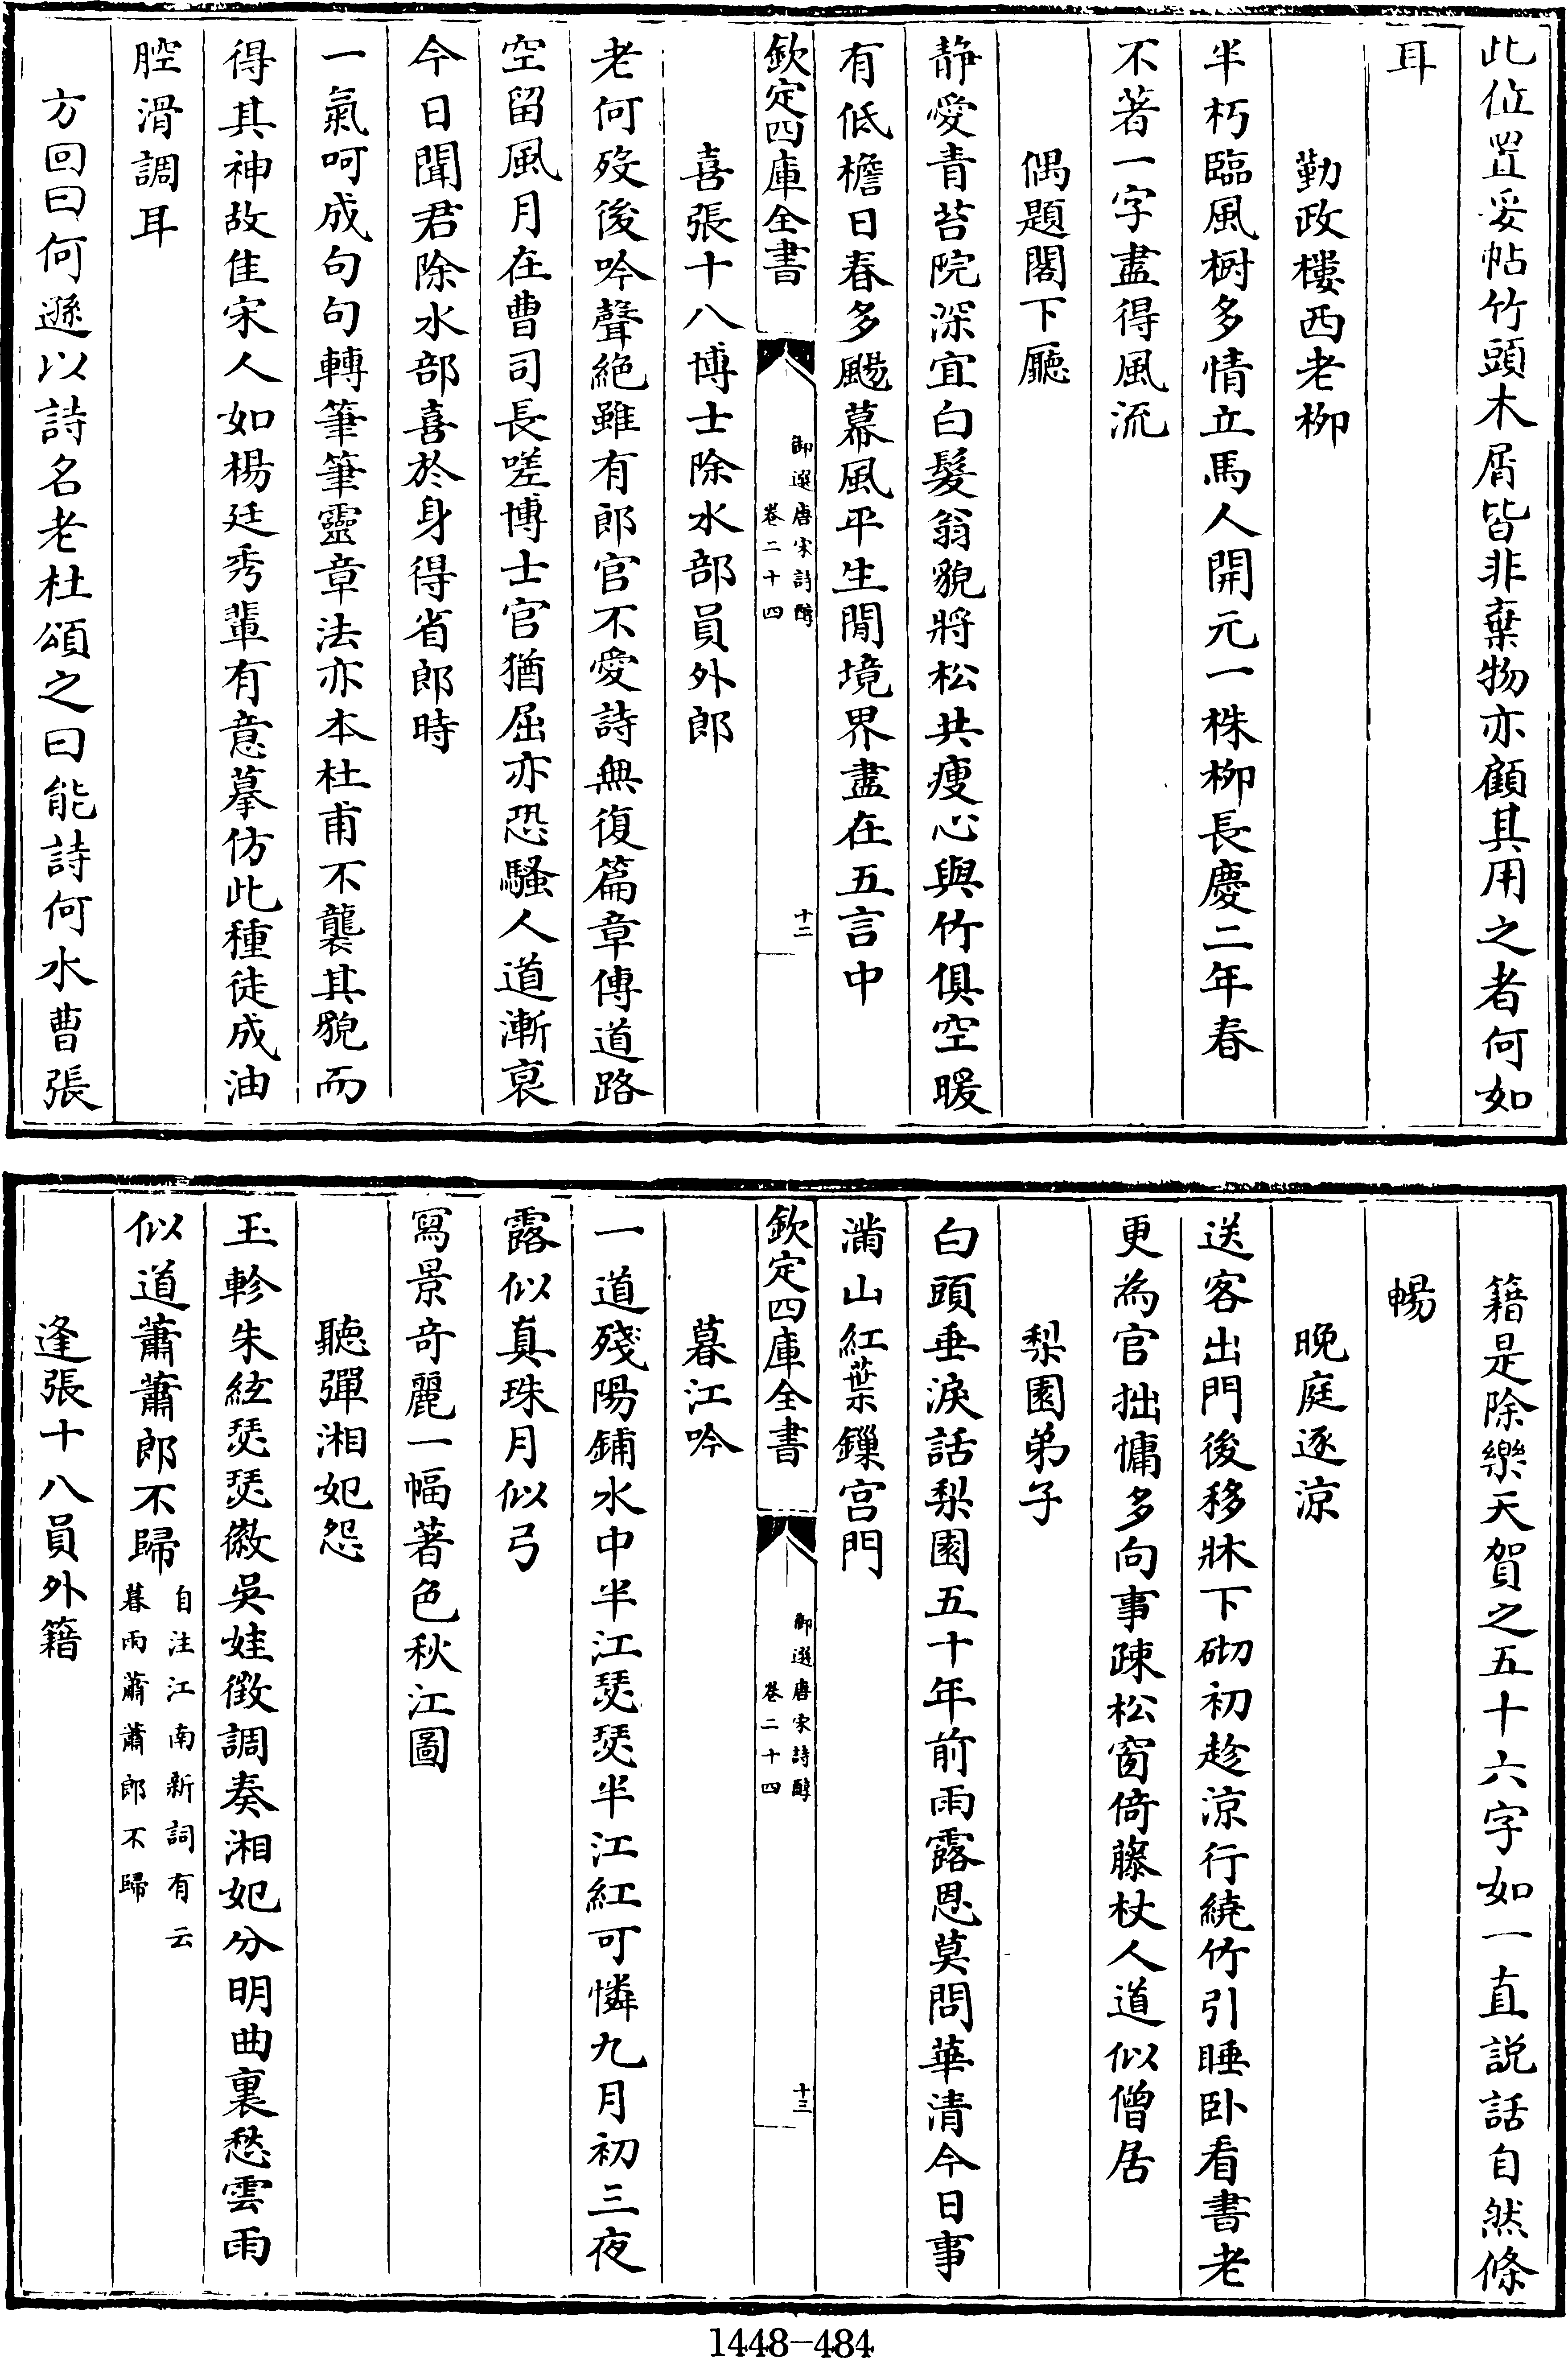 此位置妥帖竹頭木屑皆非棄物亦顧其用之者何如
耳
勤政樓西老柳
半朽臨風樹多情立馬人開元一株柳長慶二年春
不著一字盡得風流
偶題閣下廳
靜愛青苔院深宜白髮翁貌將松共瘦心與竹俱空暖
有低檐日春多颺幕風平生閒境界盡在五言中
欽定四庫全書
御選唐宋詩醇
卷二十四
十二
喜張十八博士除水部員外郎
老何歿後吟聲絶雖有郎官不愛詩無復篇章傳道路
空留風月在曹司長嗟博士官猶屈亦恐騷人道漸衰
今日聞君除水部喜於身得省郎時
一氣呵成句句轉筆筆靈章法亦本杜甫不襲其貌而
得其神故佳宋人如楊廷秀輩有意摹仿此種徒成油
腔滑調耳
方回曰何遜以詩名老杜頌之曰能詩何水曹張
籍是除樂天賀之五十六字如一直説話自然條
暢
晚庭逐涼
送客出門後移牀下砌初趁涼行繞竹引睡卧看書老
更為官拙慵多向事疎松窗倚藤杖人道似僧居
梨園弟子
白頭垂淚話梨園五十年前雨露恩莫問華清今日事
滿山紅葉鏁宫門
欽定四庫全書
御選唐宋詩醇
卷二十四
十三
暮江吟
一道殘陽鋪水中半江瑟瑟半江紅可憐九月初三夜
露似真珠月似弓
寫景奇麗一幅著色秋江圖
聽彈湘妃怨
玉軫朱絃瑟瑟徽吳娃徵調奏湘妃分明曲裏愁雲雨
似道蕭蕭郎不歸
自注江南新詞有云
暮雨蕭蕭郎不歸
逢張十八員外籍
1448-484